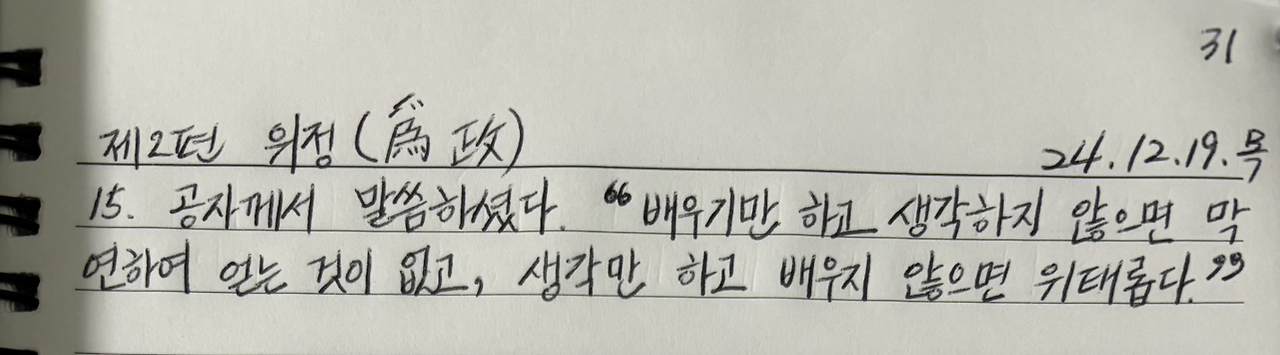 31
제2편 위정(爲政) 24.12.19.목
15. 공자께서 말씀하셨다. "배우기만 하고 생각하지 않으면 막
연하여 얻는 것이 없고, 생각만 하고 배우지 않으면 위태롭다."